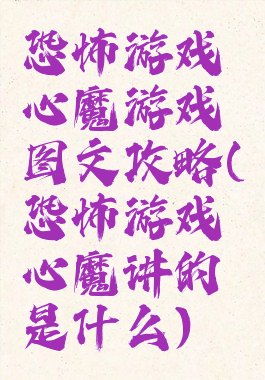 恐怖游戏
心魔游戏
图文攻略(
恐怖游戏
心魔讲的
是什么)